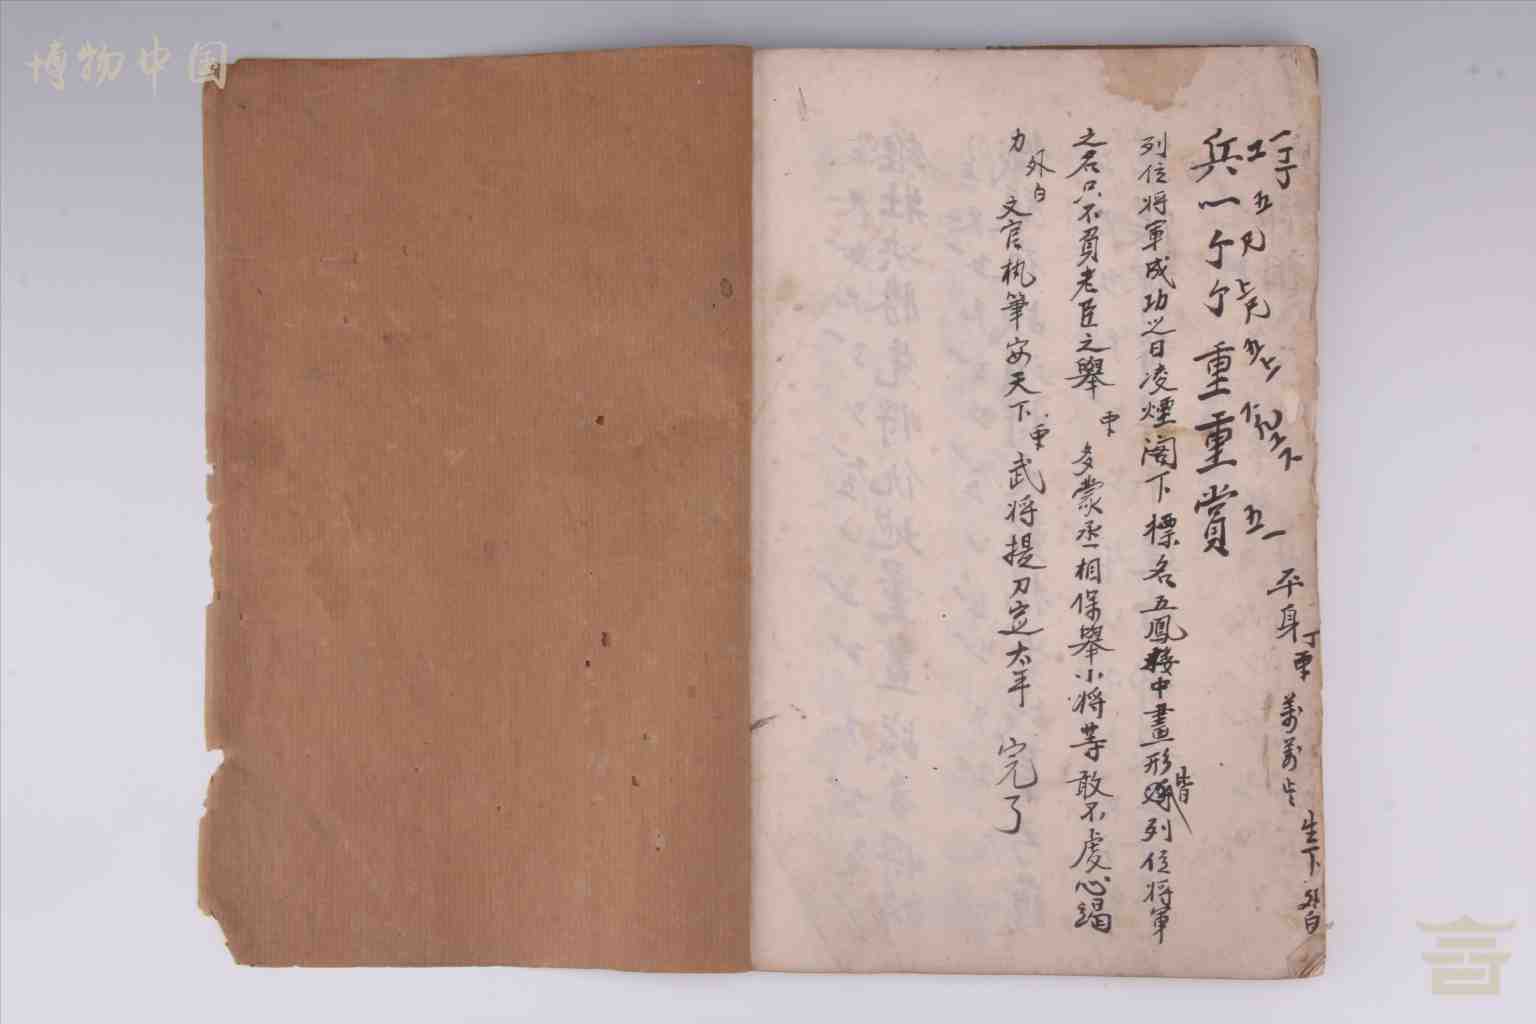 博物中国
平身 丁 萬萬 生下 外白
兵 重重賞
列位将軍成功之日凌煙阁下標名五鳳楼中畫形皆列位将軍
之名只不負老臣之舉 多蒙丞相保舉小将等敢不虔心竭
力 外白 文官执筆安天下 武将提刀定太平 完了